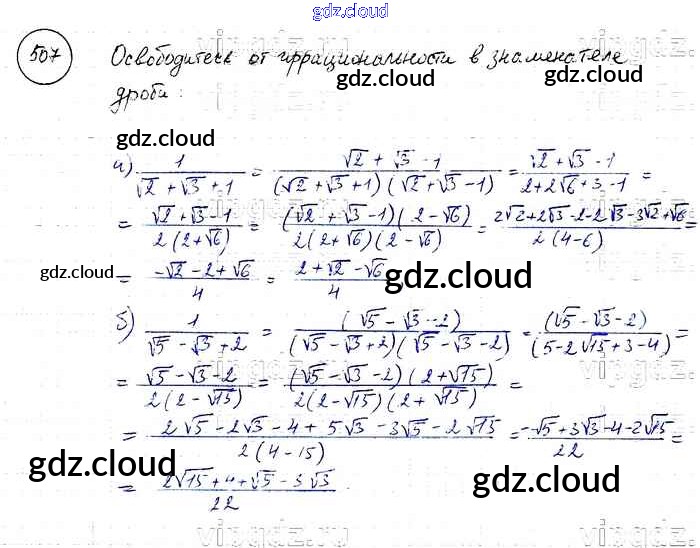 gdz.cloud
507 Освободитесь от иррациональности в знаменателе
gdz.cloud gdz.cloud
дроби:
gdz.cloud
а) 1/(√2 + √3 + 1) = (√2 + √3 - 1)/((√2 + √3 + 1)(√2 + √3 - 1)) = (√2 + √3 - 1)/(2 + 2√6 + 3 - 1) =
= (√2 + √3 - 1)/(2(2 + √6)) = ((√2 + √3 - 1)(2 - √6))/(2(2 + √6)(2 - √6)) = (2√2 + 2√3 - 2 - 2√3 - 3√2 + √6)/(2(4 - 6)) =
gdz.cloud gdz.cloud
= (-√2 - 2 + √6)/4 = (2 + √2 - √6)/4
б) 1/(√5 - √3 + 2) = (√5 - √3 - 2)/((√5 - √3 + 2)(√5 - √3 - 2)) = (√5 - √3 - 2)/(5 - 2√15 + 3 - 4) =
= (√5 - √3 - 2)/(2(2 - √15)) = ((√5 - √3 - 2)(2 + √15))/(2(2 - √15)(2 + √15)) =
= (2√5 - 2√3 - 4 + 5√3 - 3√5 - 2√15)/(2(4 - 15)) = (-√5 + 3√3 - 4 - 2√15)/22 =
gdz.cloud gdz.cloud gdz.cloud
= (2√15 + 4 + √5 - 3√3)/22.